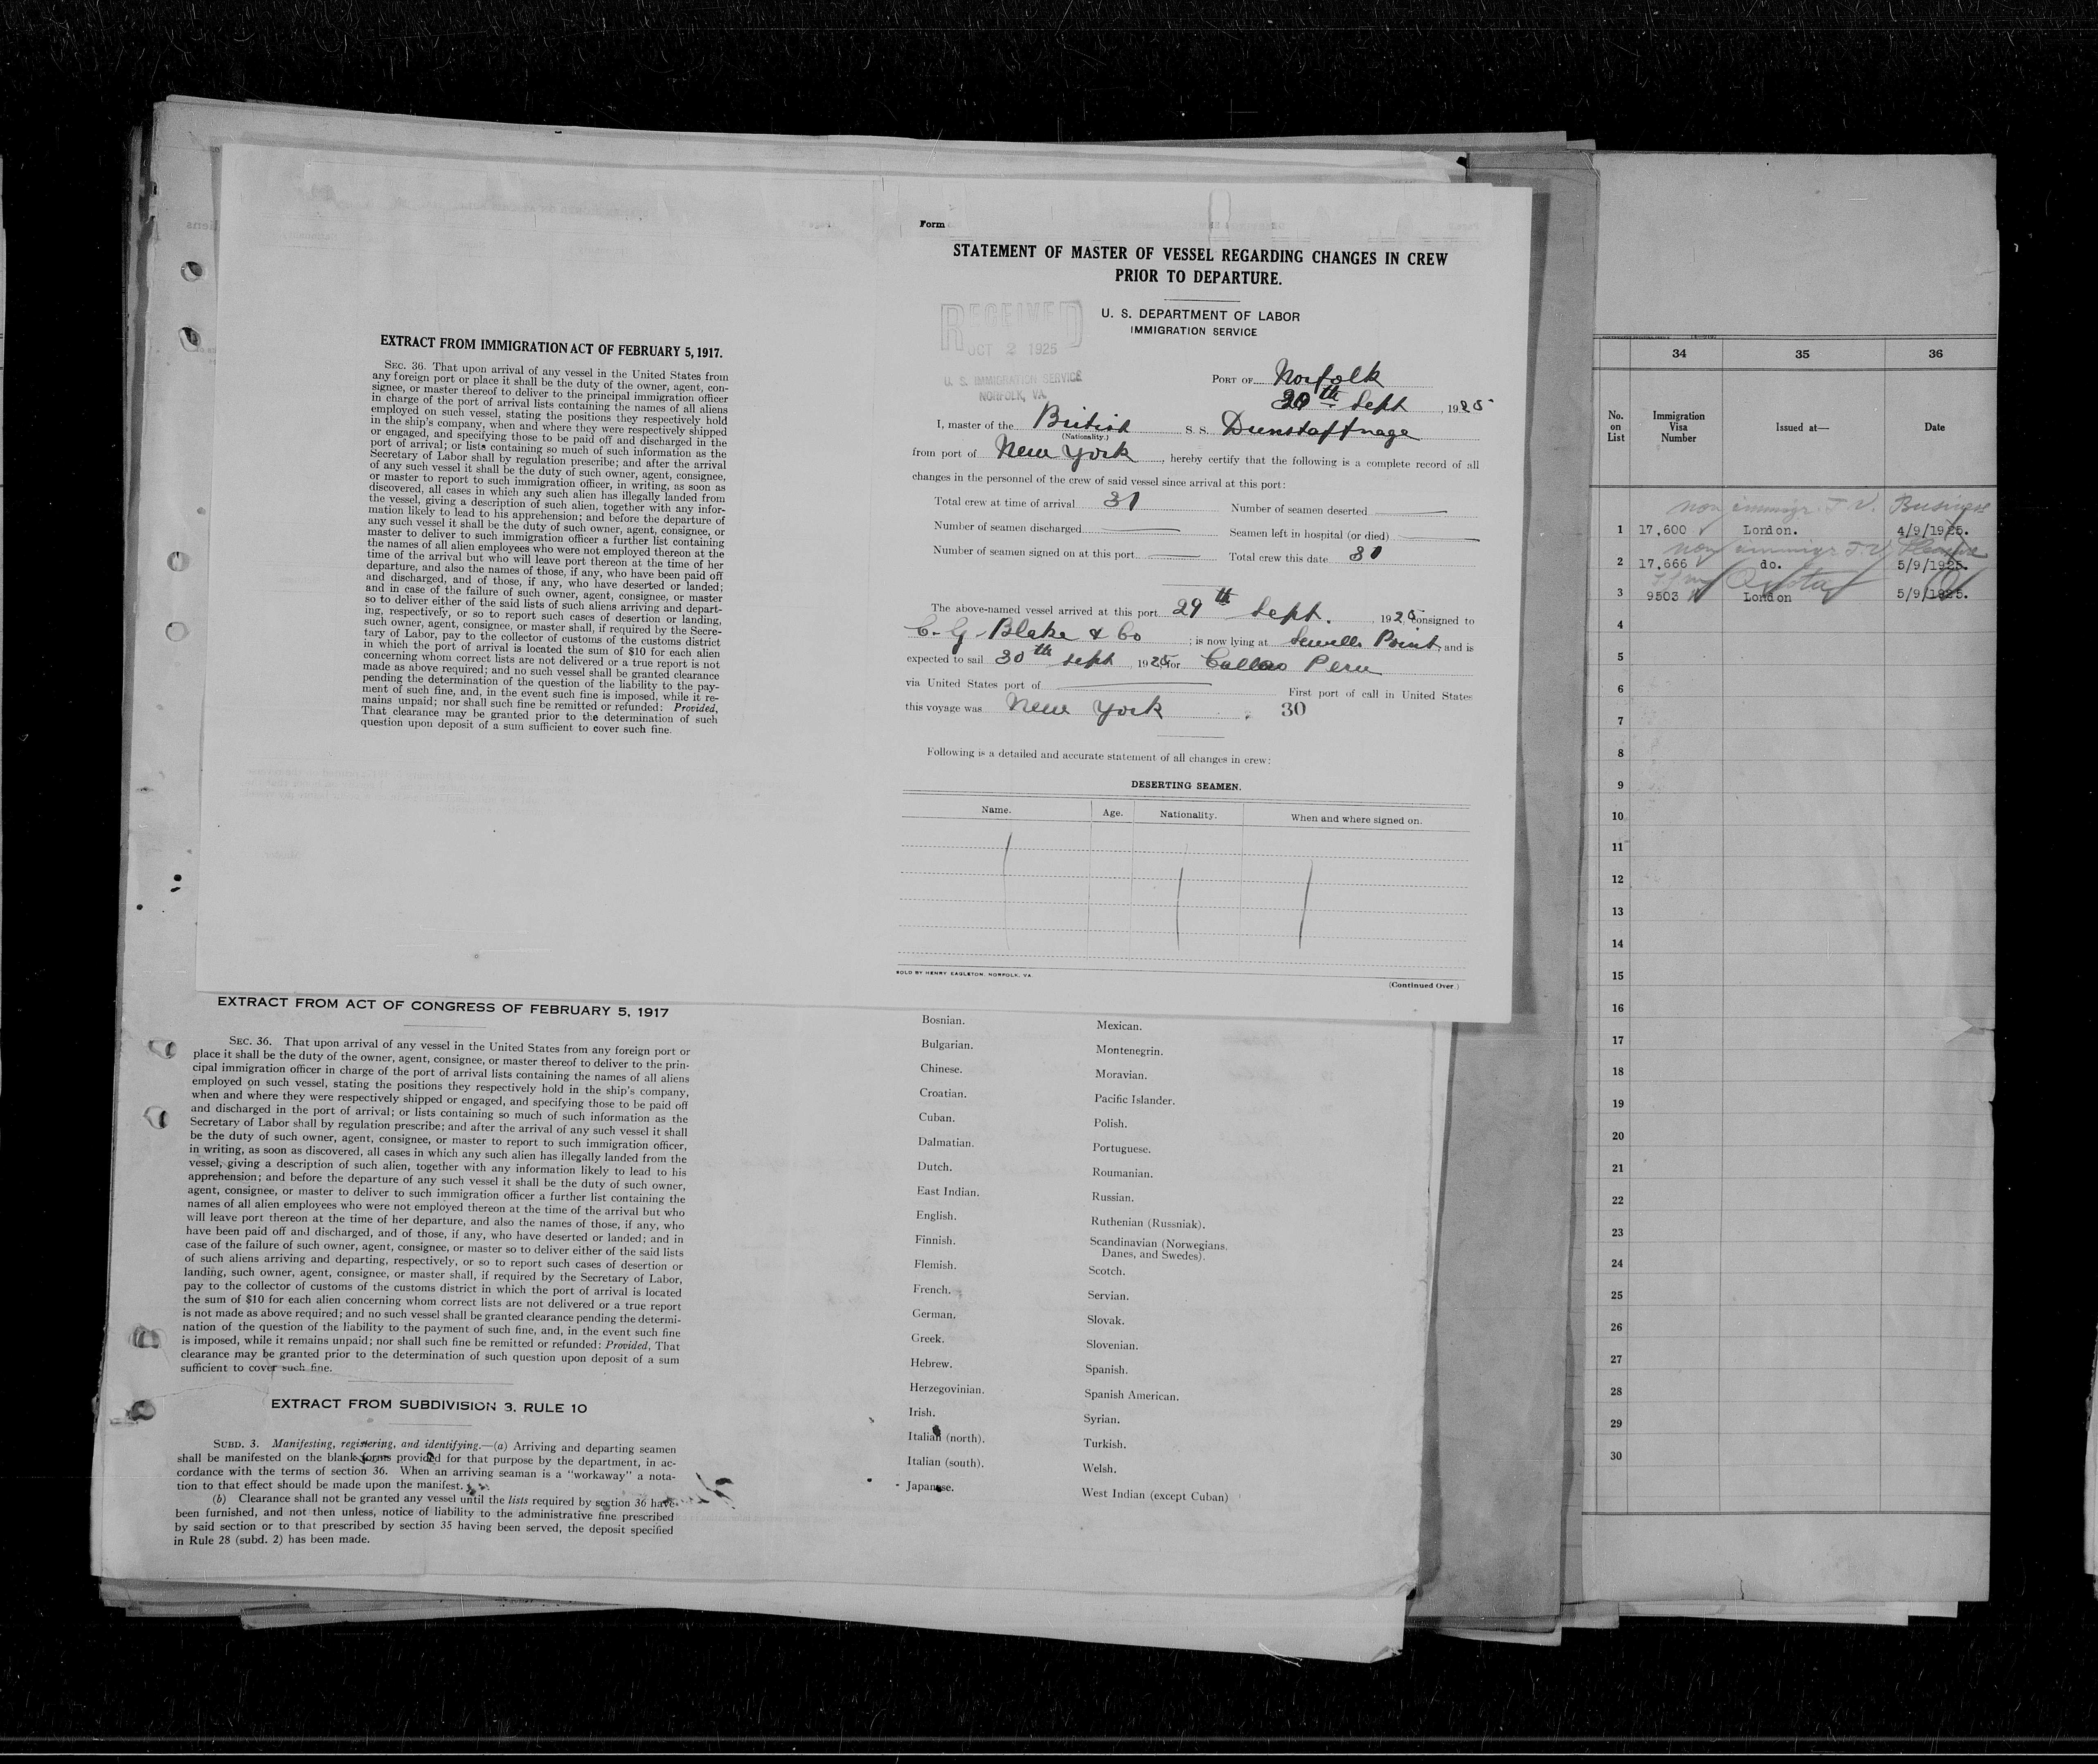 EXTRACT FROM IMMIGRATION ACT OF FEBRUARY 5, 1917.
SEC. 36. That upon arrival of any vessel in the United States from
any foreign port or place it shall be the duty of the owner, agent, con-
signee, or master thereof to deliver to the principal immigration officer
in charge of the port of arrival lists containing the names of all aliens
employed on such vessel, stating the positions they respectively hold
in the ship's company, when and where they were respectively shipped
or engaged, and specifying those to be paid off and discharged in the
port of arrival; or lists containing so much of such information as the
Secretary of Labor shall by regulation prescribe; and after the arrival
of any such vessel it shall be the duty of such owner, agent, consignee,
or master to report to such immigration officer, in writing, as soon as
discovered, all cases in which any such alien has illegally landed from
the vessel, giving a description of such alien, together with any infor-
mation likely to lead to his apprehension; and before the departure of
any such vessel it shall be the duty of such owner, agent, consignee, or
master to deliver to such immigration officer a further list containing
the names of all alien employees who were not employed thereon at the
time of the arrival but who will leave port thereon at the time of her
departure, and also the names of those, if any, who have been paid off
and discharged, and of those, if any, who have deserted or landed;
and in case of the failure of such owner, agent, consignee, or master
so to deliver either of the said lists of such aliens arriving and depart-
ing, respectively, or so to report such cases of desertion or landing,
such owner, agent, consignee, or master shall, if required by the Secre-
tary of Labor, pay to the collector of customs of the customs district
in which the port of arrival is located the sum of $10 for each alien
concerning whom correct lists are not delivered or a true report is not
made as above required; and no such vessel shall be granted clearance
pending the determination of the question of the liability to the pay-
ment of such fine, and, in the event such fine is imposed, while it re-
mains unpaid; nor shall such fine be remitted or refunded: Provided,
That clearance may be granted prior to the determination of such
question upon deposit of a sum sufficient to cover such fine.
Form
STATEMENT OF MASTER OF VESSEL REGARDING CHANGES IN CREW
PRIOR TO DEPARTURE.
U. S. DEPARTMENT OF LABOR
IMMIGRATION SERVICE
RECEIVED
OCT 2 1925
U. S. IMMIGRATION SERVICE
NORFOLK, VA.
PORT OF Norfolk
30th Sept, 1925
I, master of the British S. S. Dunstaffnage
(Nationality.)
from port of New York, hereby certify that the following is a complete record of all
changes in the personnel of the crew of said vessel since arrival at this port:
Total crew at time of arrival 31 Number of seamen deserted
Number of seamen discharged Seamen left in hospital (or died)
Number of seamen signed on at this port Total crew this date 31
The above-named vessel arrived at this port 29th Sept., 1925, consigned to
C. G. Blake & Co; is now lying at Sewells Point, and is
expected to sail 30th Sept, 1925 for Callao Peru
via United States port of First port of call in United States
this voyage was New York. 30
Following is a detailed and accurate statement of all changes in crew:
DESERTING SEAMEN.
Name. Age. Nationality. When and where signed on.
SOLD BY HENRY EAGLETON, NORFOLK, VA.
(Continued Over.)
EXTRACT FROM ACT OF CONGRESS OF FEBRUARY 5, 1917
SEC. 36. That upon arrival of any vessel in the United States from any foreign port or
place it shall be the duty of the owner, agent, consignee, or master thereof to deliver to the prin-
cipal immigration officer in charge of the port of arrival lists containing the names of all aliens
employed on such vessel, stating the positions they respectively hold in the ship's company,
when and where they were respectively shipped or engaged, and specifying those to be paid off
and discharged in the port of arrival; or lists containing so much of such information as the
Secretary of Labor shall by regulation prescribe; and after the arrival of any such vessel it shall
be the duty of such owner, agent, consignee, or master to report to such immigration officer,
in writing, as soon as discovered, all cases in which any such alien has illegally landed from the
vessel, giving a description of such alien, together with any information likely to lead to his
apprehension; and before the departure of any such vessel it shall be the duty of such owner,
agent, consignee, or master to deliver to such immigration officer a further list containing the
names of all alien employees who were not employed thereon at the time of the arrival but who
will leave port thereon at the time of her departure, and also the names of those, if any, who
have been paid off and discharged, and of those, if any, who have deserted or landed; and in
case of the failure of such owner, agent, consignee, or master so to deliver either of the said lists
of such aliens arriving and departing, respectively, or so to report such cases of desertion or
landing, such owner, agent, consignee, or master shall, if required by the Secretary of Labor,
pay to the collector of customs of the customs district in which the port of arrival is located
the sum of $10 for each alien concerning whom correct lists are not delivered or a true report
is not made as above required; and no such vessel shall be granted clearance pending the determi-
nation of the question of the liability to the payment of such fine, and, in the event such fine
is imposed, while it remains unpaid; nor shall such fine be remitted or refunded: Provided, That
clearance may be granted prior to the determination of such question upon deposit of a sum
sufficient to cover such fine.
EXTRACT FROM SUBDIVISION 3, RULE 10
SUBD. 3. Manifesting, registering, and identifying.—(a) Arriving and departing seamen
shall be manifested on the blank forms provided for that purpose by the department, in ac-
cordance with the terms of section 36. When an arriving seaman is a "workaway" a nota-
tion to that effect should be made upon the manifest.
(b) Clearance shall not be granted any vessel until the lists required by section 36 have
been furnished, and not then unless, notice of liability to the administrative fine prescribed
by said section or to that prescribed by section 35 having been served, the deposit specified
in Rule 28 (subd. 2) has been made.
Bosnian. Mexican.
Bulgarian. Montenegrin.
Chinese. Moravian.
Croatian. Pacific Islander.
Cuban. Polish.
Dalmatian. Portuguese.
Dutch. Roumanian.
East Indian. Russian.
English. Ruthenian (Russniak).
Finnish. Scandinavian (Norwegians,
Danes, and Swedes).
Flemish. Scotch.
French. Servian.
German. Slovak.
Greek. Slovenian.
Hebrew. Spanish.
Herzegovinian. Spanish American.
Irish. Syrian.
Italian (north). Turkish.
Italian (south). Welsh.
Japanese. West Indian (except Cuban)
34 35 36
No. on List Immigration Visa Number Issued at— Date
non immigr. T. V. Business
1 17,600 London. 4/9/1925.
non immigr T.V. Pleasure
2 17,666 do. 5/9/1925.
Quota
3 9503 London 5/9/1925.
4
5
6
7
8
9
10
11
12
13
14
15
16
17
18
19
20
21
22
23
24
25
26
27
28
29
30